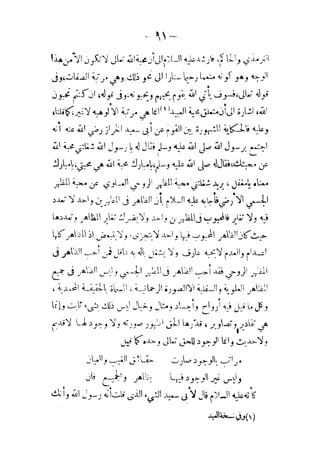 — ٩١ —
الترمذي والحاكم، فارشد عليه السلام إلى أن محبة الله تعالى لا تكون الا من هذا
الوجه وهو كونه منعما رحيما ستارا إلى نحو ذلك وهي مرتبة الصفات، وفى
قوله تعالى، فسوف يأتي الله بقوم يحبهم ويحبونه، وفى قوله، ان كنتم تحبون
الله، اشارة الى أن متعلق محبة العبيد (١) انما هي مرتبة الألوهيه لا غير، كما قلناه،
وعليه فالحكاية المشهورة بين القوم عن أبى سعيد الخراز رضي الله عنه أنه
اجتمع برسول الله صلى الله عليه وسلم فقال له يا رسول الله شغلتني محبة الله
عن محبتك، فقال له صلى الله عليه وسلم، يا مبارك محبة الله هي محبتي، يا مبارك
معناه يا مغفل، يريد شغلتني محبة المظهر الروحي السماوي عن محبة المظهر
الجسمي الأرضي فأجابه عليه السلام بأن الظاهر فى المظهرين واحد لا تعدد
فيه ولا تغاير فالمحبوب فى المظهرين واحد ولا يضرك تغاير المظاهر وتعددها
حيث كان الظاهر المحبوب فيها واحد لا يتجزى، ولا يتبعض اذ المظاهر كلها
انعدام والعدم لا يحبه عارف ولا يشغل باله به عاقل فمن أحب الظاهر فى
المظهر الروحي فقد أحب الظاهر فى المظهر الجسمي وليس الظاهر فى جميع
المظاهر العلوية والسفلية الا الصورة الرحمانية، المسماة بالحقيقة المحمدية،
وكل ما قيل فيه أرواح وأجساد ومثال وخيال ليس ذلك شيء ثابت وإنما
هي تقادير وتصاوير، قدرها الحق لظهور صورته ولا وجود لها لا قديم
ولا حديث وانما الوجود للحق تعالى وحده كما قيل
مراتب بالوجود صارت حقائق الغيب والعيان
وليس غير الوجود فيها بظاهر والجميع فان
كأنه عليه السلام قال لأبى سعيد الشيء الذى قلت أنه رسول الله وأنك
(١) وفى نسخة العبد